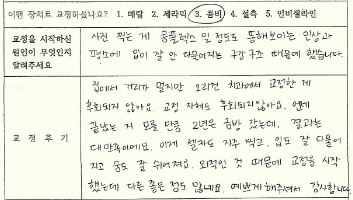 어떤 장치로 교정하셨나요? 1. 메탈 2. 세라믹 3. 콤비 4. 설측 5. 인비절라인
교정을 시작하신
원인이 무엇인지
알려주세요
사진 찍는 게 콤플렉스 일 정도로 뚱해보이는 인상과
평소에 입이 잘 안 다물어지는 구강구조 때문에 했습니다.
교 정 후 기
집에서 거리가 멀지만 오리진 치과에서 교정한 게
후회되지 않아요. 교정 자체도 후회되지않아요. 언제
끝났는 지 모를 만큼 2년은 금방 갔는데, 결과는
대만족이에요. 이제 셀카도 자주 찍고, 입도 잘 다물어
지고 숨도 잘 쉬어져요. 외적인 것 때문에 교정을 시작
했는데 다른 좋은 점도 많네요. 예쁘게 해주셔서 감사합니다.